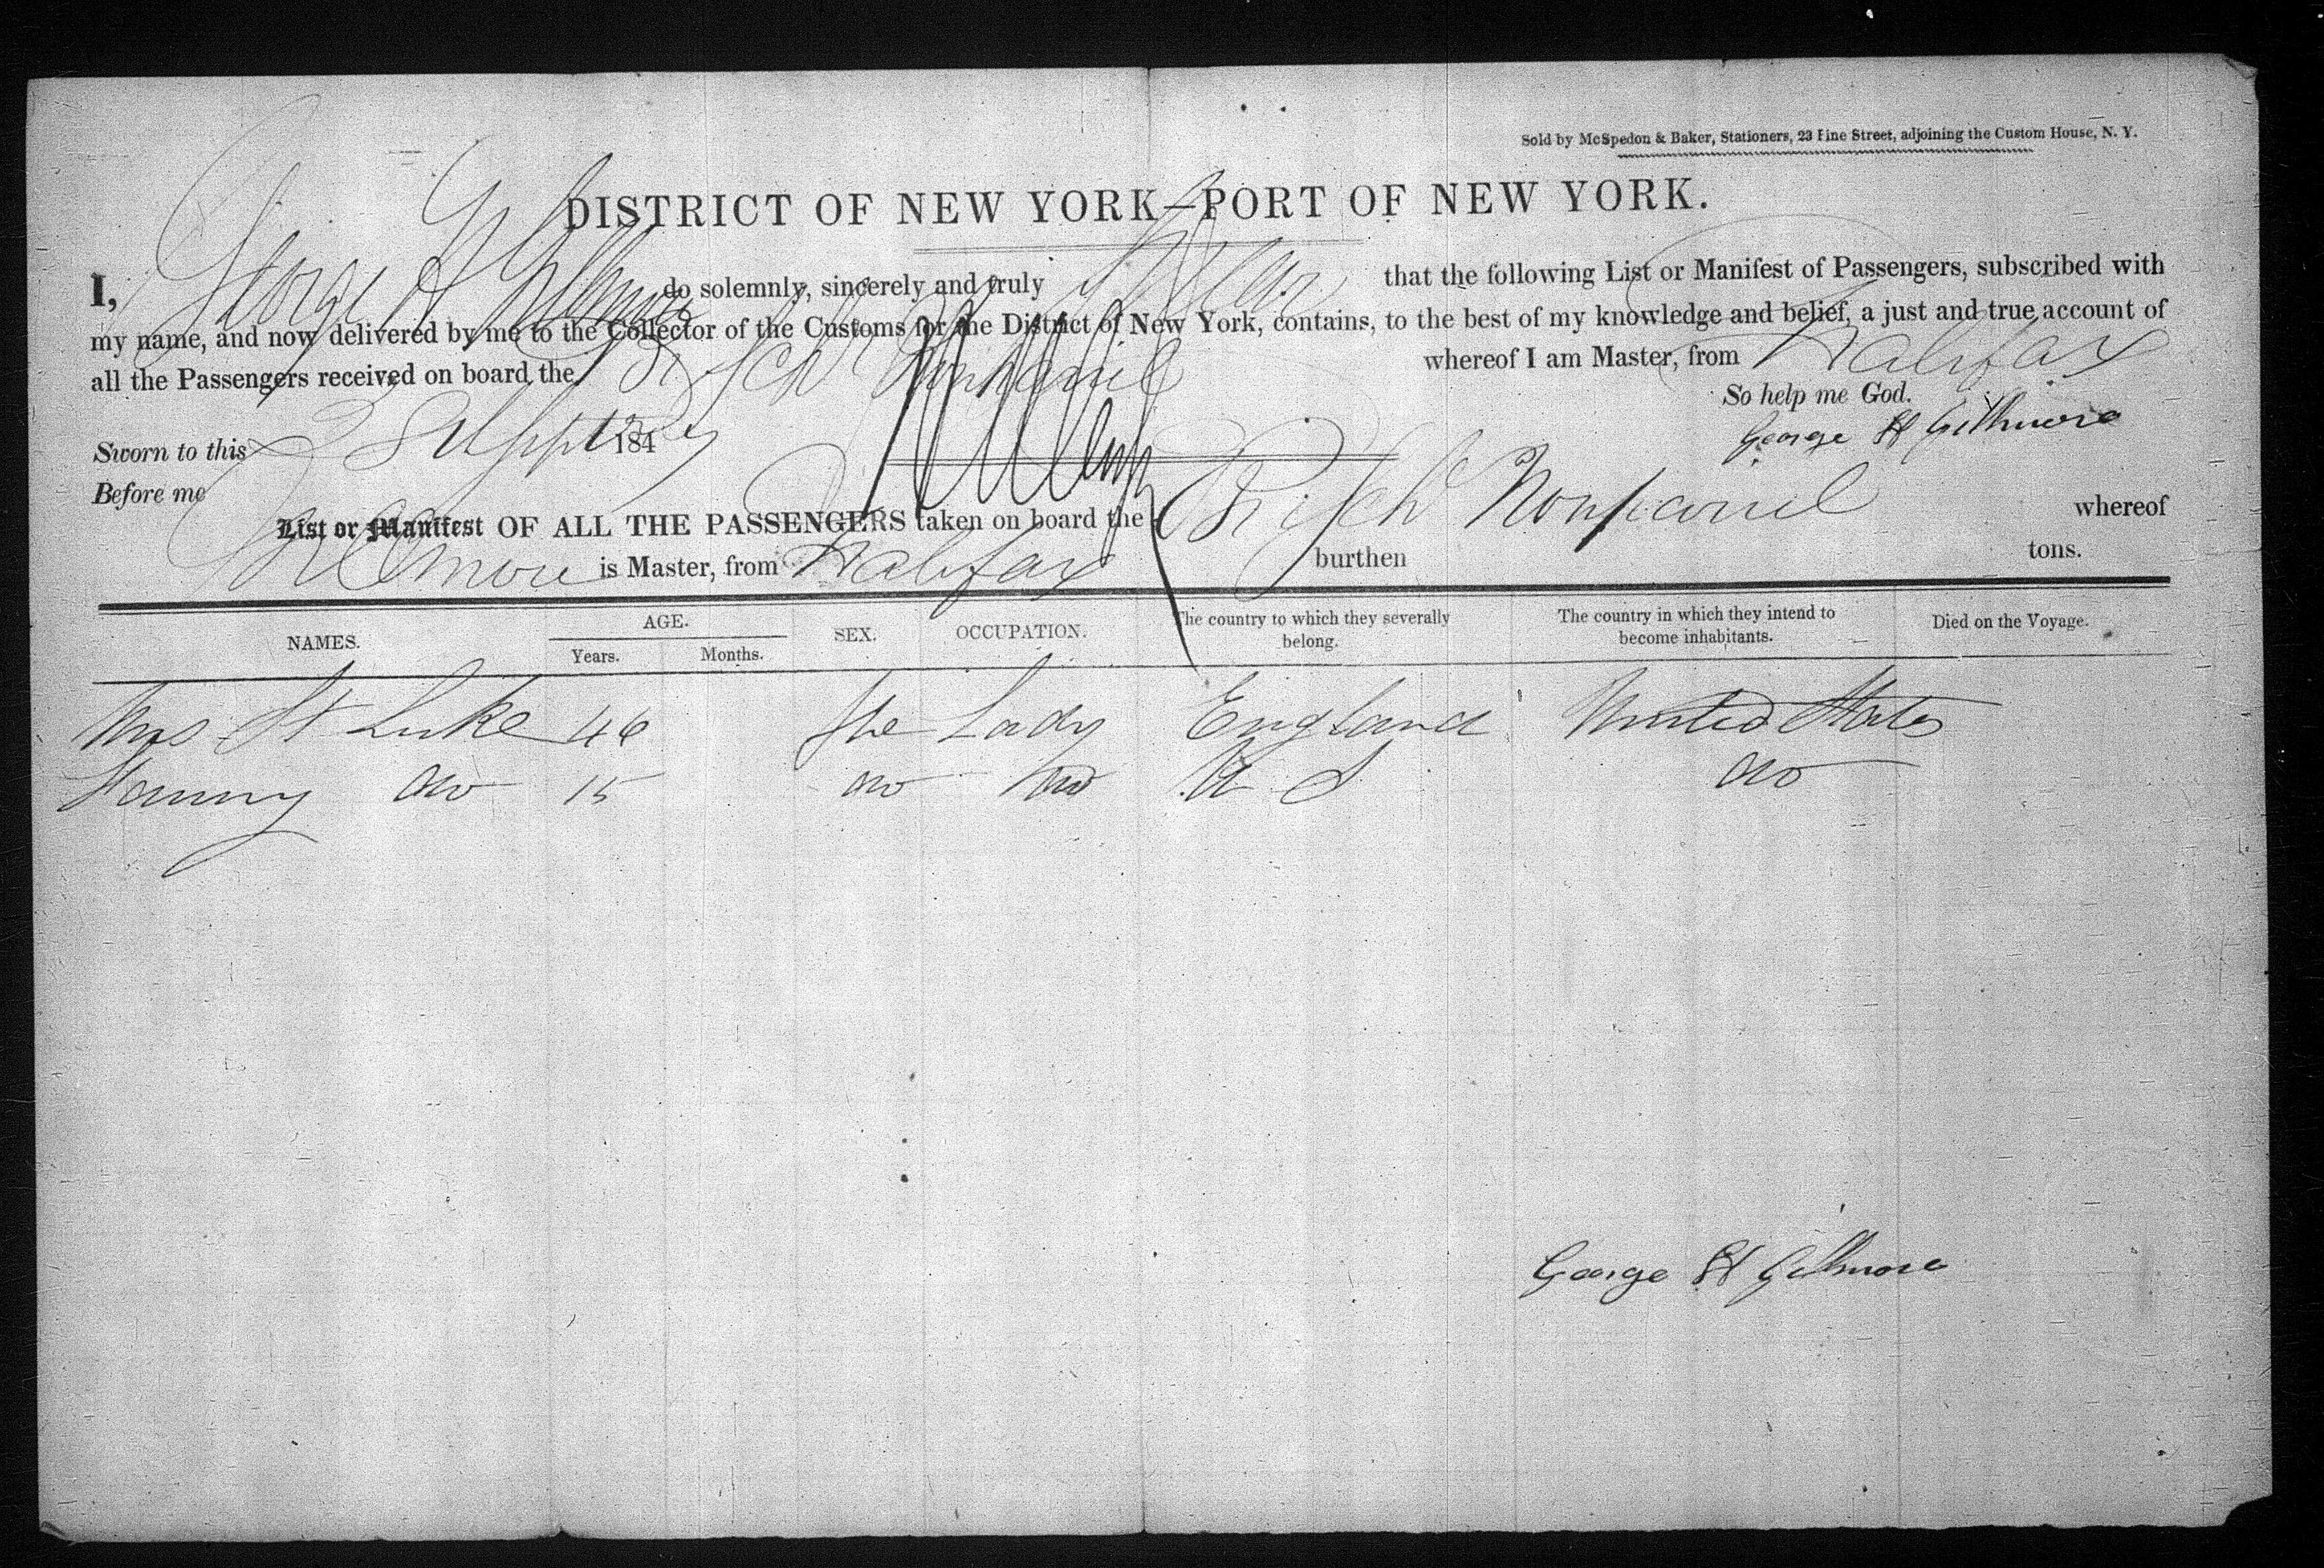 Sold by McSpedon & Baker, Stationers, 23 Pine Street, adjoining the Custom House, N. Y.
DISTRICT OF NEW YORK—PORT OF NEW YORK.
I, George H Gilmore do solemnly, sincerely and truly Swear that the following List or Manifest of Passengers, subscribed with
my name, and now delivered by me to the Collector of the Customs for the District of New York, contains, to the best of my knowledge and belief, a just and true account of
all the Passengers received on board the Br Sch Nonpariel whereof I am Master, from Halifax
So help me God.
Sworn to this 2 Sept 184
George H Gillmore
Before me
List or Manifest OF ALL THE PASSENGERS taken on board the Br Sch Nonpariel whereof
Gillmore is Master, from Halifax burthen tons.
NAMES. AGE. Years. Months. SEX. OCCUPATION. The country to which they severally belong. The country in which they intend to become inhabitants. Died on the Voyage.
Mrs St Luke 46 fle Lady England United States
Fanny do 15 do do U S do
George H Gillmore